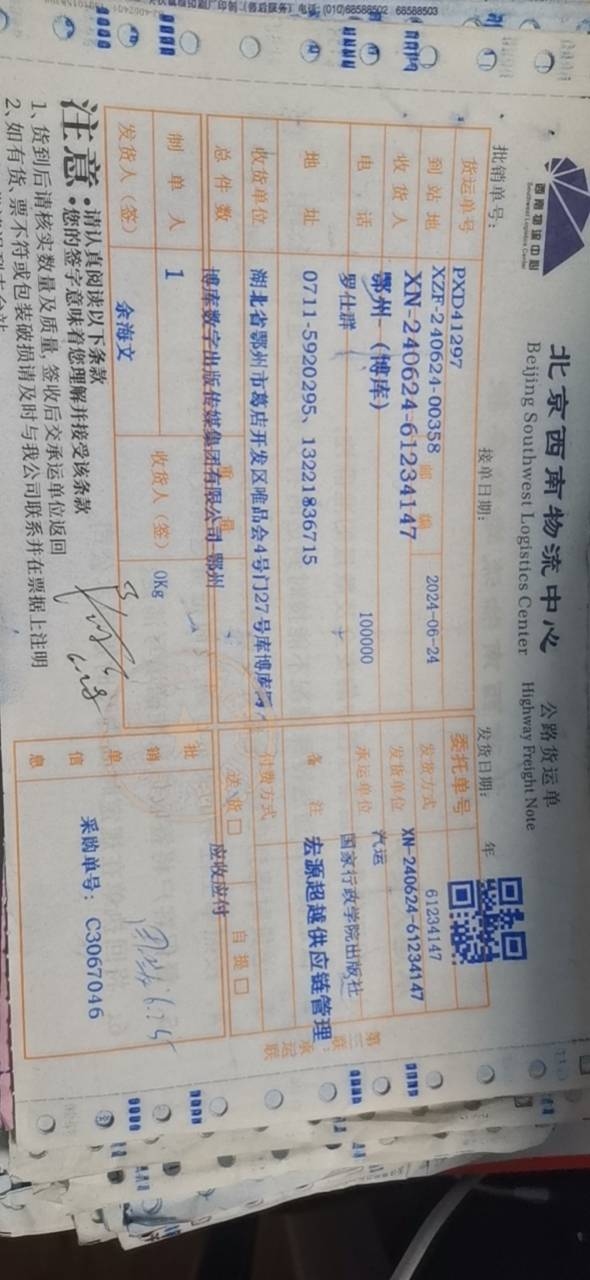 西南物流中心
Southwest Logistics Center
北京西南物流中心 公路货运单
Beijing Southwest Logistics Center Highway Freight Note
批销单号:
接单日期:
发货日期: 年
货运单号 PXD41297
XZF-240624-00358
2024-06-24
委托单号 61234147
到站地 XN-240624-61234147
邮编
发货方式 XN-240624-61234147
收货人 鄂州-(博库)
发货单位 汽运
电话 罗仕群
100000
承运单位 国家行政学院出版社
地址 0711-5920295、13221836715
备注 宏源超越供应链管理
收货单位 湖北省鄂州市葛店开发区唯品会4号门27号库博库
付费方式
总件数 博库数字出版传媒集团有限公司-鄂州
重量
送货 □ 应收应付 自提 □
制单人 1
收货人(签) 0Kg
发货人(签) 余海文
批销单信息
采购单号: C3067046
第三联:承运联
注意:
请认真阅读以下条款
您的签字意味着您理解并接受该条款
1、货到后请核实数量及质量,签收后交承运单位返回
2、如有货、票不符或包装破损请及时与我公司联系并在票据上注明
(售后服务) 电话: (010)68588502 68588503